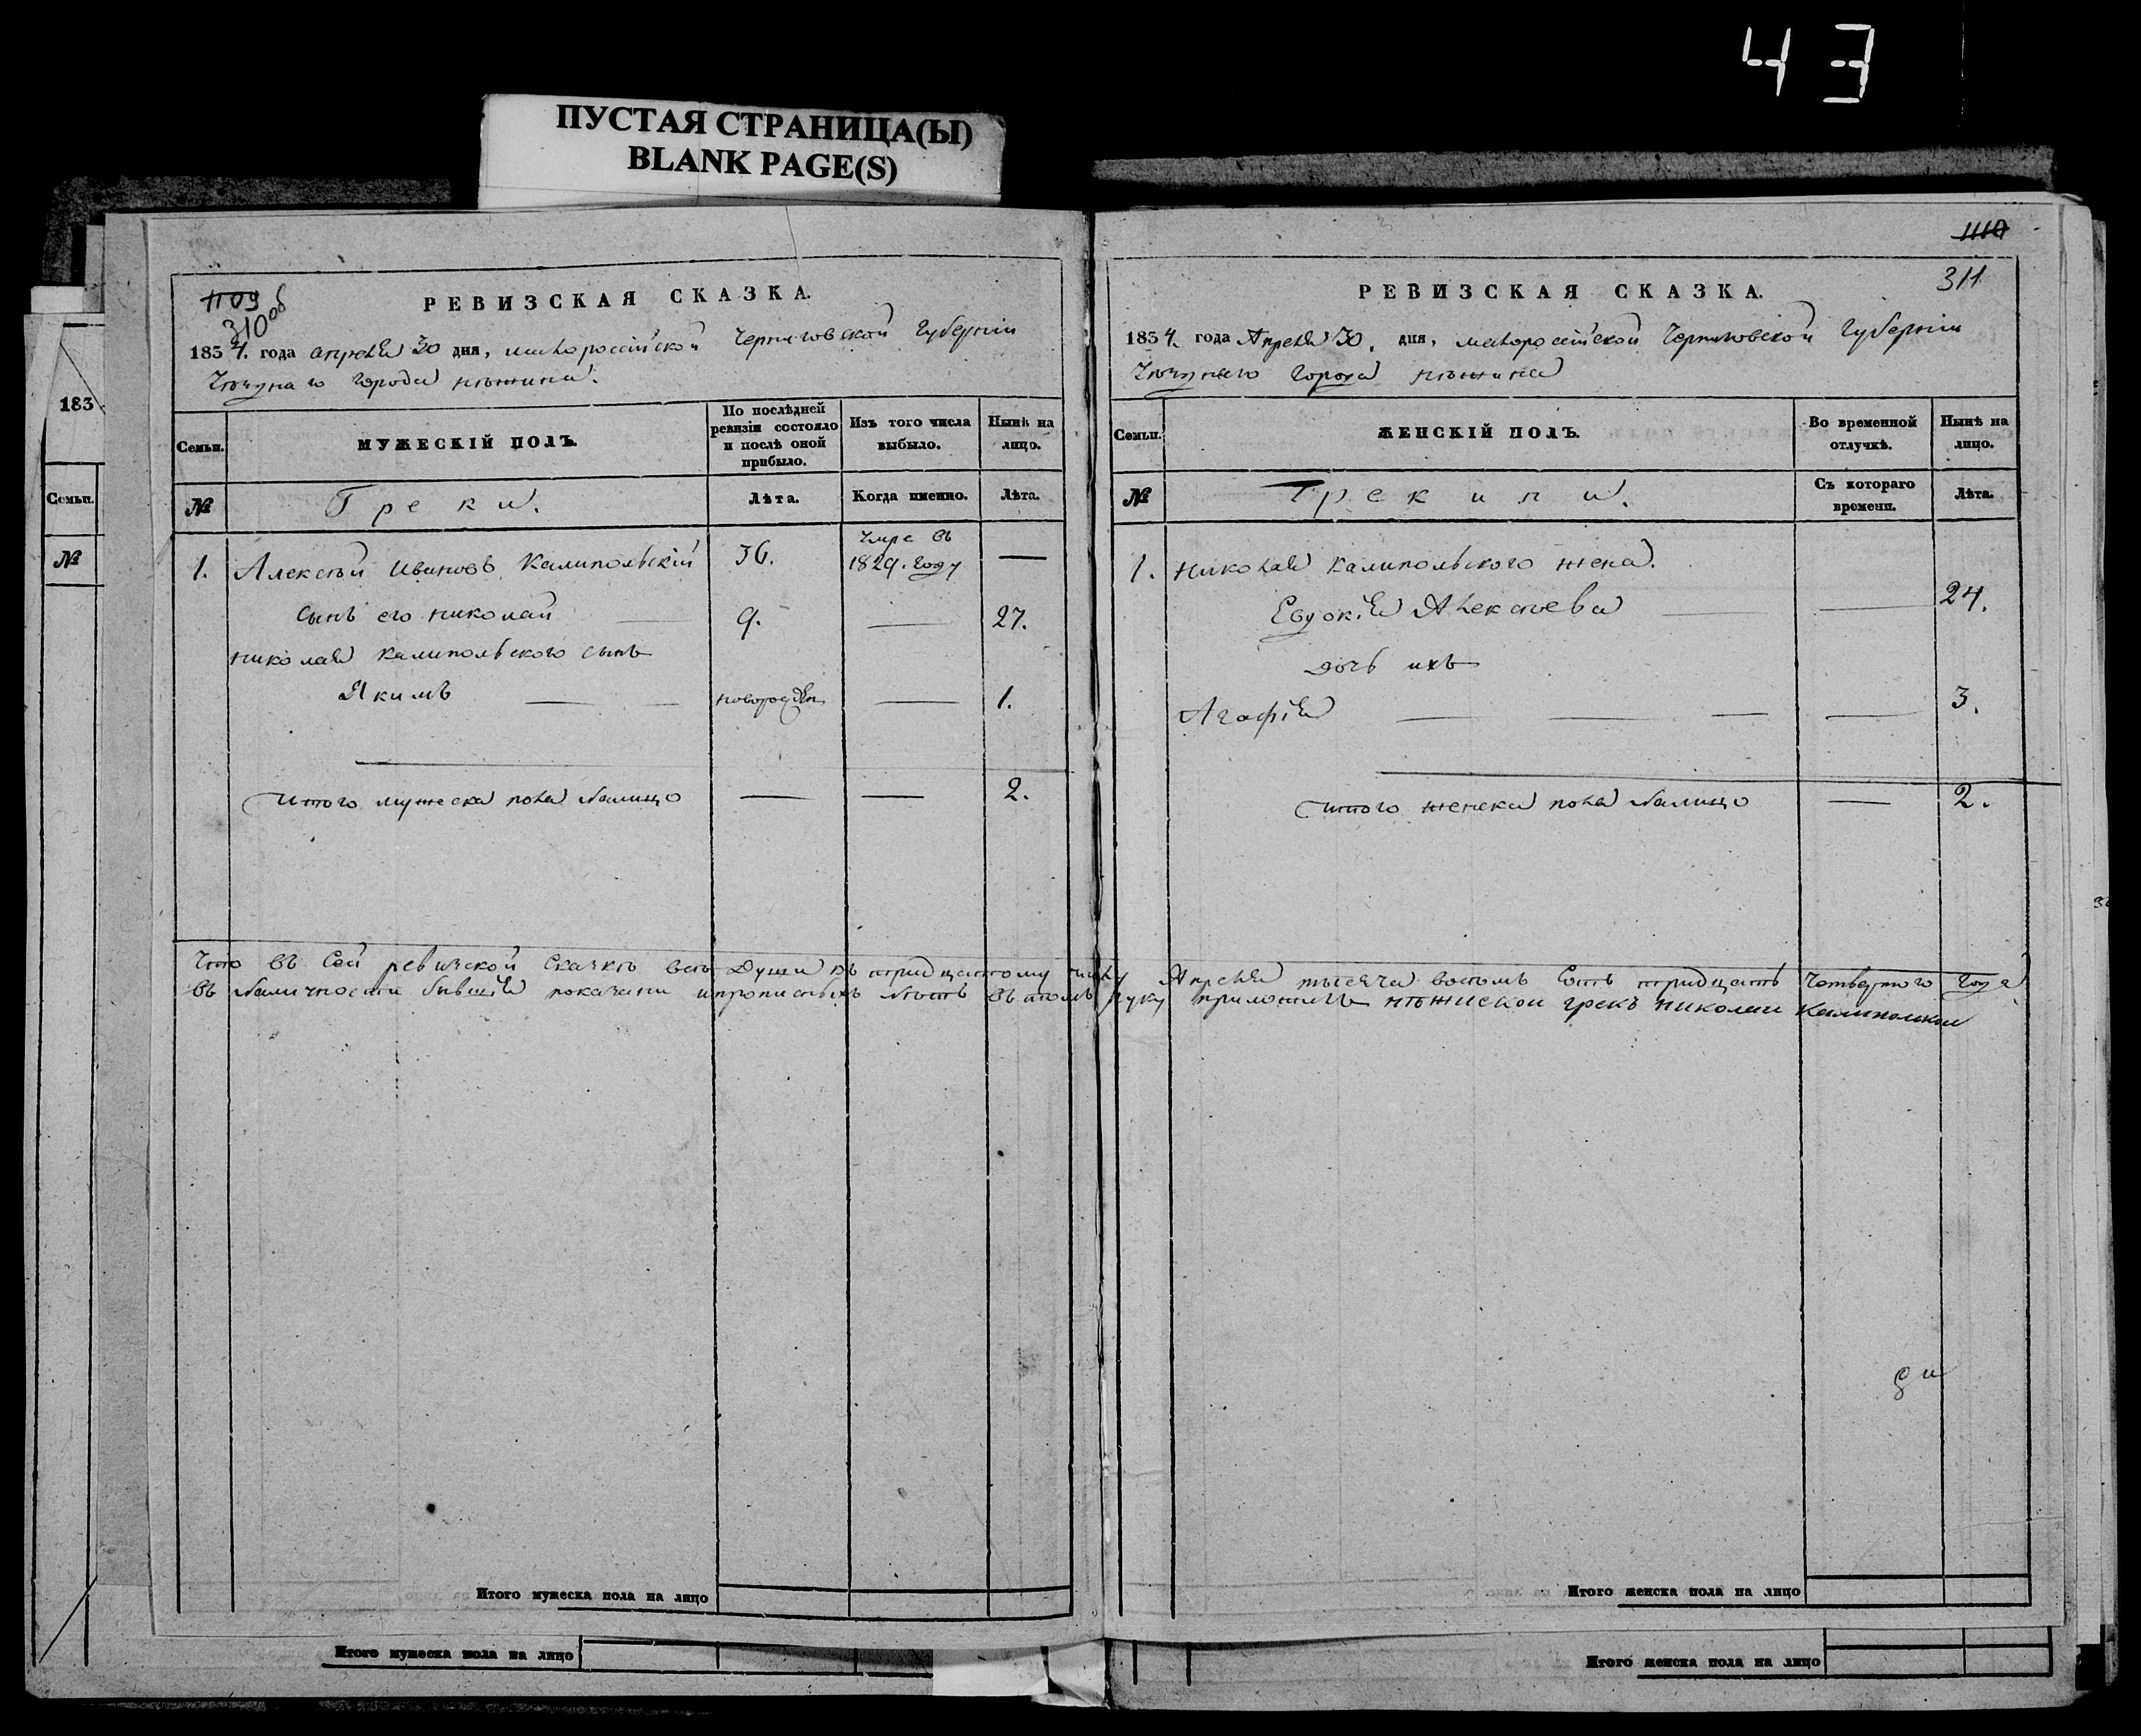 43
ПУСТАЯ СТРАНИЦА(Ы)
BLANK PAGE(S)
1109
310 об
РЕВИЗСКАЯ СКАЗКА.
1834. года апреля 30 дня, малороссійской Черниговской Губерніи
города нѣжина.
Семьи.
МУЖЕСКІЙ ПОЛЪ.
По послѣдней ревизіи состояло и послѣ оной прибыло.
Изъ того числа выбыло.
Нынѣ на лицо.
№
Греки.
Лѣта.
Когда именно.
Лѣта.
1. Алексѣй Ивановъ Калипольскій 36. умре въ 1829. году —
сынъ его николай — 9. — 27.
николая калипольского сынъ
Якимъ — — новорожден — 1.
Итого мужеска пола налицо — — 2.
Что въ сей ревизской скаскѣ всѣ души къ тридцатому числу Апреля тысяча восемъ сотъ тридцать четвертого года
въ наличности бывшія показани и прописныхъ нѣтъ въ томъ руку приложилъ нѣжискои грекъ николаи Калиполскои
Итого мужеска пола на лицо
Итого мужеска пола на лицо
183
Семьи.
№
1110
311
РЕВИЗСКАЯ СКАЗКА.
1834. года Апреля 30. дня, малоросійской Черниговской Губерніи
города нѣжина
Семьи.
ЖЕНСКІЙ ПОЛЪ.
Во временной отлучкѣ.
Нынѣ на лицо.
№
Грекини.
Съ котораго времени.
Лѣта.
1. николая калипольского жена.
Евдокія Алексѣева — — 24.
дочь ихъ
Агафія — — — — 3.
Итого женска пола налицо — 2.
Итого женска пола на лицо
Итого женска пола на лицо